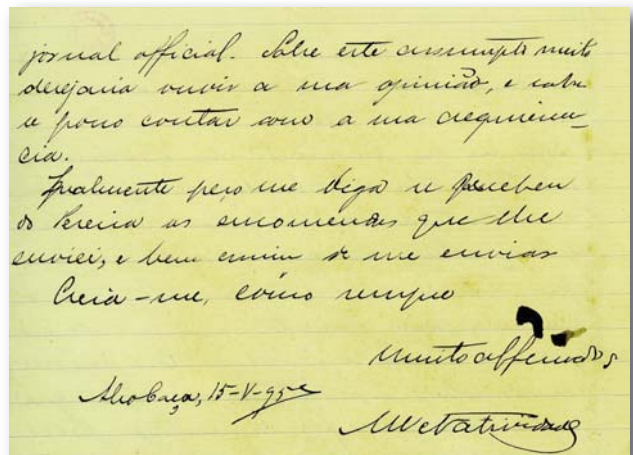 jornal official. Sobre este assumpto muito
desejaria ouvir a sua opinião, e saber
se posso contar com a sua acquiescen-
cia.
Igualmente peço me diga se recebeu
do Pereira as encommendas que lhe
enviei, e bem assim de me enviar
Creia-me, como sempre
Muito affeiçoado
Alcobaça, 15-V-95
MVieira Natividade